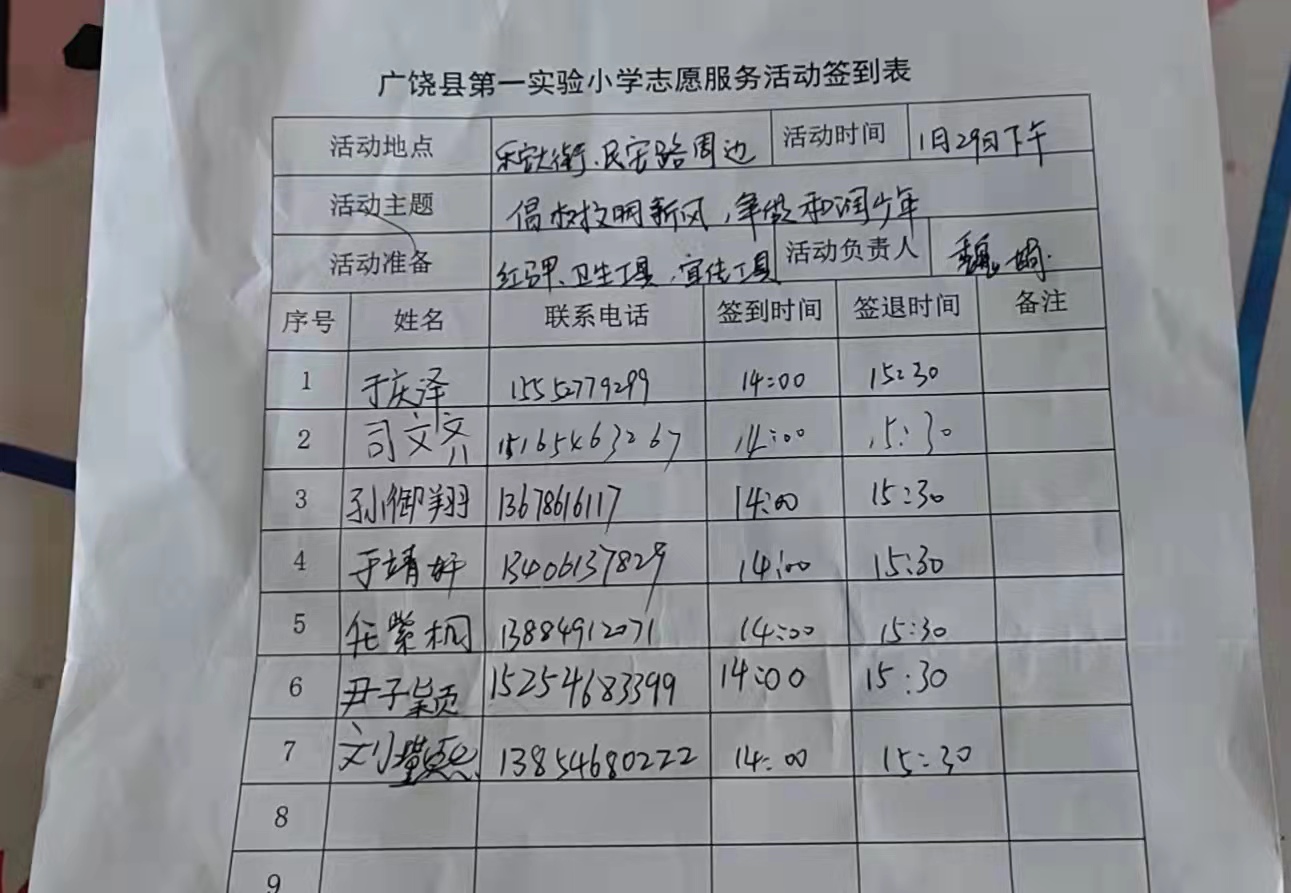 广饶县第一实验小学志愿服务活动签到表
活动地点 乐安大街、民安路周边 活动时间 1月29日下午
活动主题 倡树文明新风,争做和润少年
活动准备 红马甲、卫生工具、宣传工具 活动负责人 魏
序号 姓名 联系电话 签到时间 签退时间 备注
1 于庆泽 15552779299 14:00 15:30
2 司文齐 15165463267 14:00 15:30
3 孙御翔 13678616117 14:00 15:30
4 于靖轩 13406137829 14:00 15:30
5 任紫桐 13884912071 14:00 15:30
6 尹子颖 15254683399 14:00 15:30
7 刘 13854680222 14:00 15:30
8
9